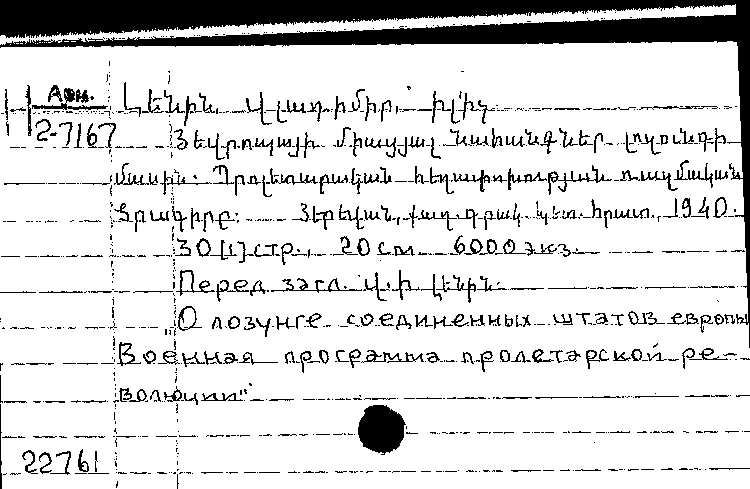 Арм. Լենին, Վլադիմիր, Իլիչ
2-7167 Յեվրոպայի Միացյալ Նահանգներ լոզունգի
մասին: Պրոլետարական հեղափոխության ռազմական
Ծրագիրը: Յերեվան, քաղ. գրակ. պետ. հրատ., 1940.
30 [1] стр., 20 см. 6000 экз.
Перед загл. Վ. Ի. Լենին.
"О лозунге соединенных штатов европы
Военная программа пролетарской ре-
волюции".
22761